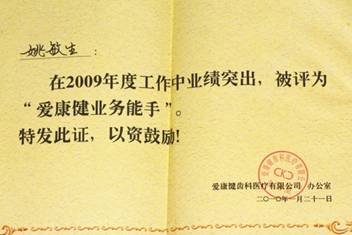 姚敏生：
在2009年度工作中业绩突出，被评为
“爱康健业务能手”。
特发此证，以资鼓励!
爱康健齿科医疗有限公司 办公室
二〇一〇年一月二十一日